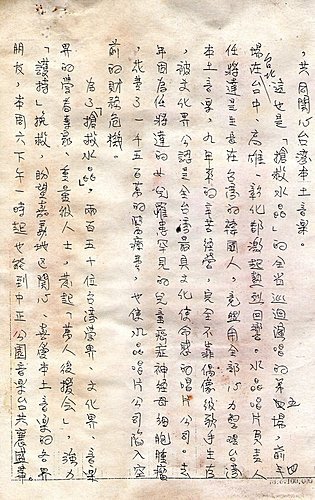 ，共同關心台灣本土音樂。
這也是「搶救水晶」的全省巡迴演唱的第五場，前四
場在台北、台中、高雄、彰化都激起熱烈回響。水晶唱片負責人
任將達是生意在台灣的韓國人，竟然用全部心力奉獻台灣
本土音樂。九年來的辛苦經營，完全不靠偶像級歌手生存
，被文化界公認是全台灣最具文化使命感的唱片公司。去
年因為任將達的女兒罹患罕見的兒童癌症神經母細胞腫瘤
，花費了一千五百萬的醫療費，也使水晶唱片公司陷入空
前的財務危機。
為了「搶救水晶」，兩百五十位台灣學界、文化界、音樂
界的學者專家、意義級人士，發起「萬人後援會」，強力
「護持」搶救，盼望嘉義地區關心、喜愛本土音樂的各界
朋友，本周六下午一時起也能到中正公園音樂台共襄盛舉。